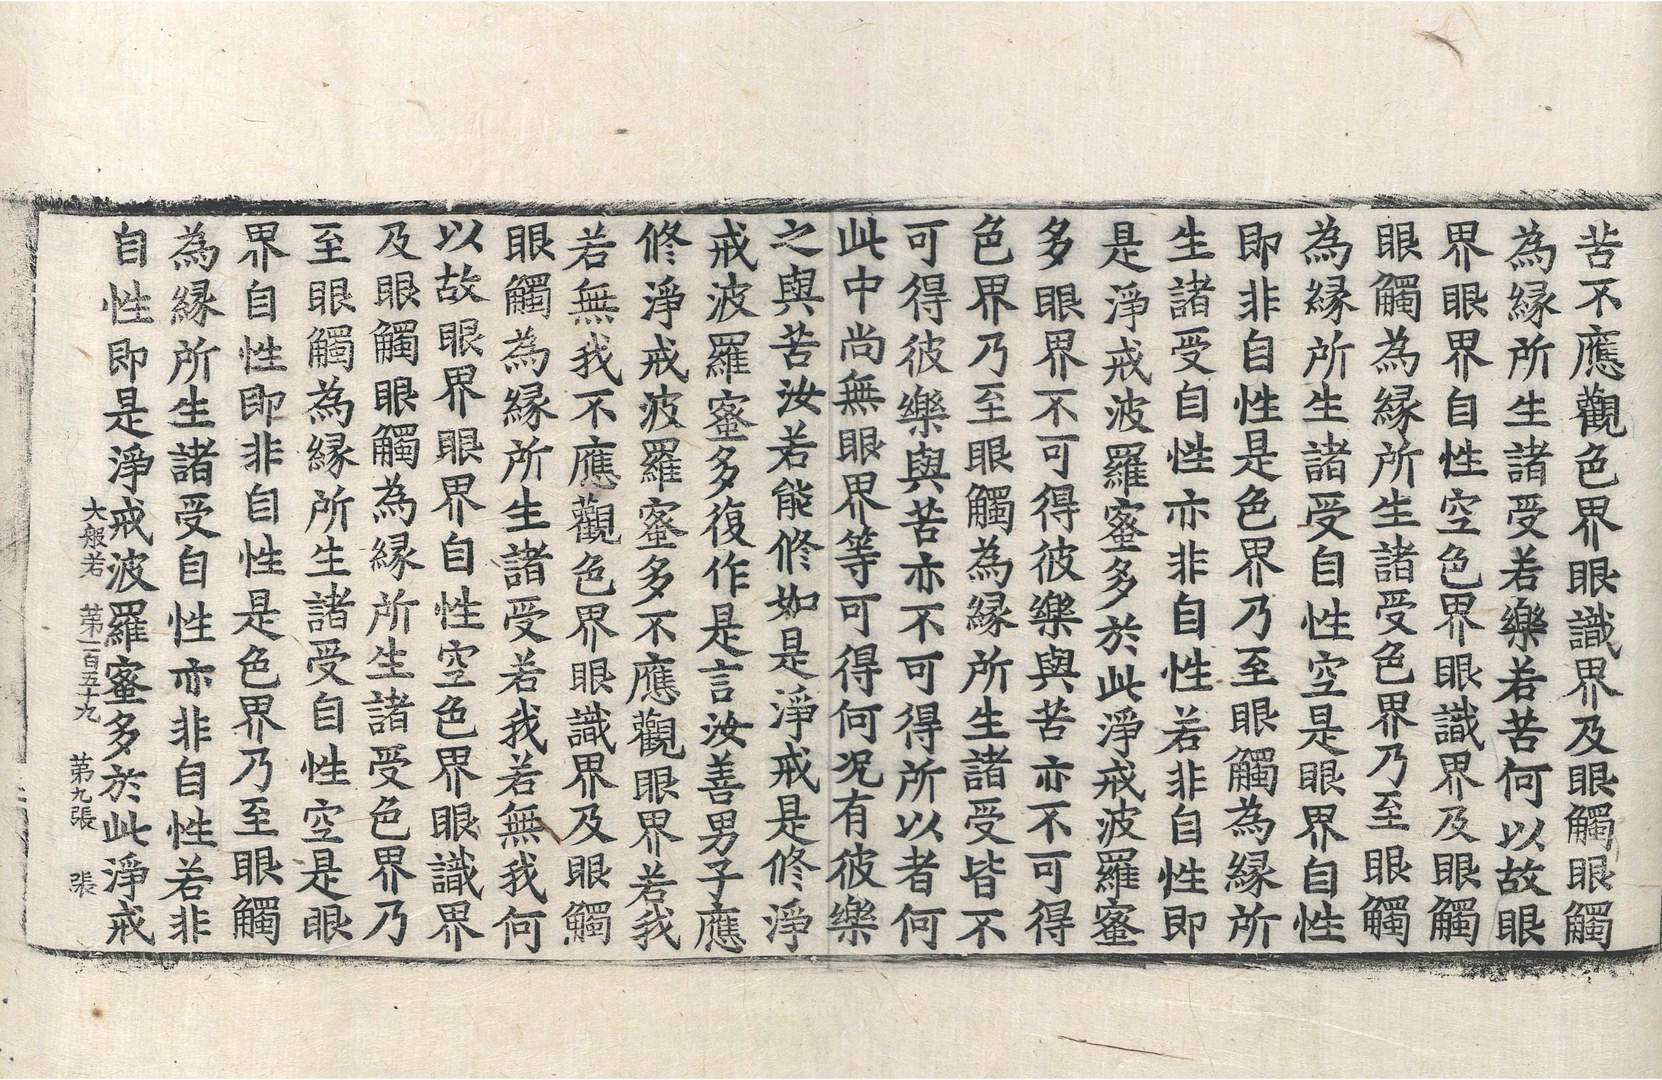 苦不應觀色界眼識界及眼觸眼觸
為縁所生諸受若樂若苦何以故眼
界眼界自性空色界眼識界及眼觸
眼觸為縁所生諸受色界乃至眼觸
為縁所生諸受自性空是眼界自性
即非自性是色界乃至眼觸為縁所
生諸受自性亦非自性若非自性即
是淨戒波羅蜜多於此淨戒波羅蜜
多眼界不可得彼樂與苦亦不可得
色界乃至眼觸為縁所生諸受皆不
可得彼樂與苦亦不可得所以者何
此中尚無眼界等可得何况有彼樂
之與苦汝若能修如是淨戒是修淨
戒波羅蜜多復作是言汝善男子應
修淨戒波羅蜜多不應觀眼界若我
若無我不應觀色界眼識界及眼觸
眼觸為縁所生諸受若我若無我何
以故眼界眼界自性空色界眼識界
及眼觸眼觸為縁所生諸受色界乃
至眼觸為縁所生諸受自性空是眼
界自性即非自性是色界乃至眼觸
為縁所生諸受自性亦非自性若非
自性即是淨戒波羅蜜多於此淨戒
大般若 第一百五十九 第九張 張